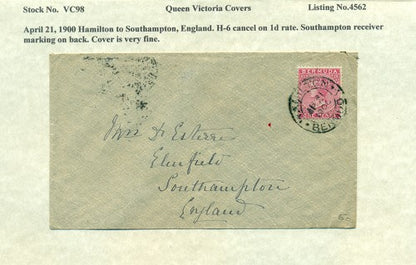 Stock No. VC98 Queen Victoria Covers Listing No.4562
April 21, 1900 Hamilton to Southampton, England. H-6 cancel on 1d rate. Southampton receiver
marking on back. Cover is very fine.
BERMUDA
Elmfield
Southampton
England